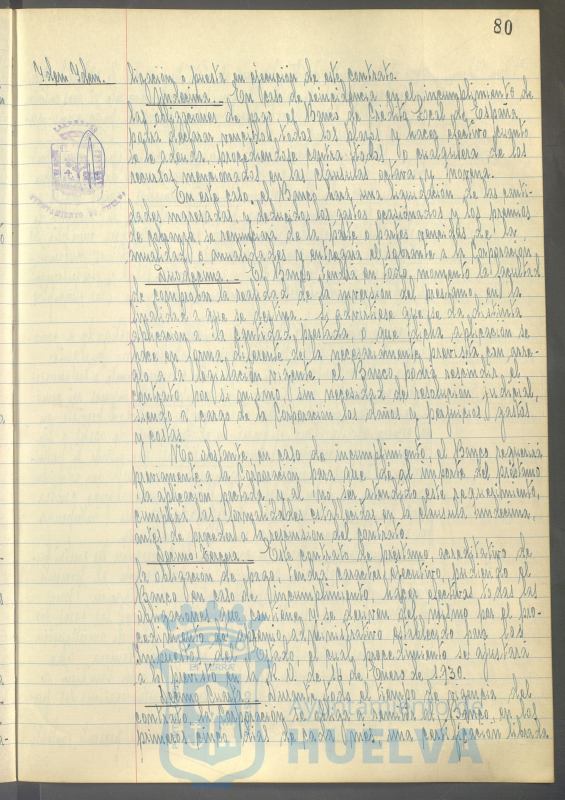 80
Idem Idem. ligación o puesta en ejecución de este contrato.
Undécima.- En caso de reincidencia en el incumplimiento de
las obligaciones de pago, el Banco de Crédito Local de España
podrá declarar vencidos todos los plazos y hacer efectivo cuanto
se le adeuda, procediendose contra todos, o cualquiera de los
recursos mencionados en las cláusulas octava y novena.
En este caso, el Banco hará una liquidación de las canti-
dades ingresadas, y deducidos los gastos ocasionados y los premios
de cobranza, se reintegrará de la parte o partes vencidas de la
anualidad o anualidades y entregará el sobrante a la Corporación.
Duodécima.- El Banco tendrá en todo momento la facultad
de comprobar la realidad de la inversión del préstamo, en la
finalidad a que se destina. Si advirtiese que se da distinta
aplicación a la cantidad prestada, o que dicha aplicación se
hace en forma diferente de la necesariamente prevista, con arre-
glo, a la legislación vigente, el Banco, podrá rescindir el
contrato por si mismo, sin necesidad de resolución judicial,
siendo a cargo de la Corporación los daños y perjuicios, gastos
y costas.
No obstante, en caso de incumplimiento, el Banco requerirá
previamente a la Corporación para que dé al importe del préstamo
la aplicación pactada, y al no ser atendido este requerimiento,
cumplirá las formalidades establecidas en la cláusula undécima,
antes de proceder a la rescisión del contrato.
Décimo tercera.- Este contrato de préstamo, acreditativo de
la obligación de pago, tendrá carácter ejecutivo, pudiendo el
Banco en caso de incumplimiento, hacer efectivas todas las
obligaciones que contiene y se deriven del mismo por el pro-
cedimiento de apremio administrativo establecido para los
impuestos del Estado, el cual procedimiento se ajustará
a lo previsto en R. D. de 16 de Enero de 1.930.
Décimo cuarta.- durante todo el tiempo de vigencia del
contrato, la Corporación se obliga a remitir al Banco, en los
primeros cinco días de cada mes, una certificación librada
Ayuntamiento de
HUELVA